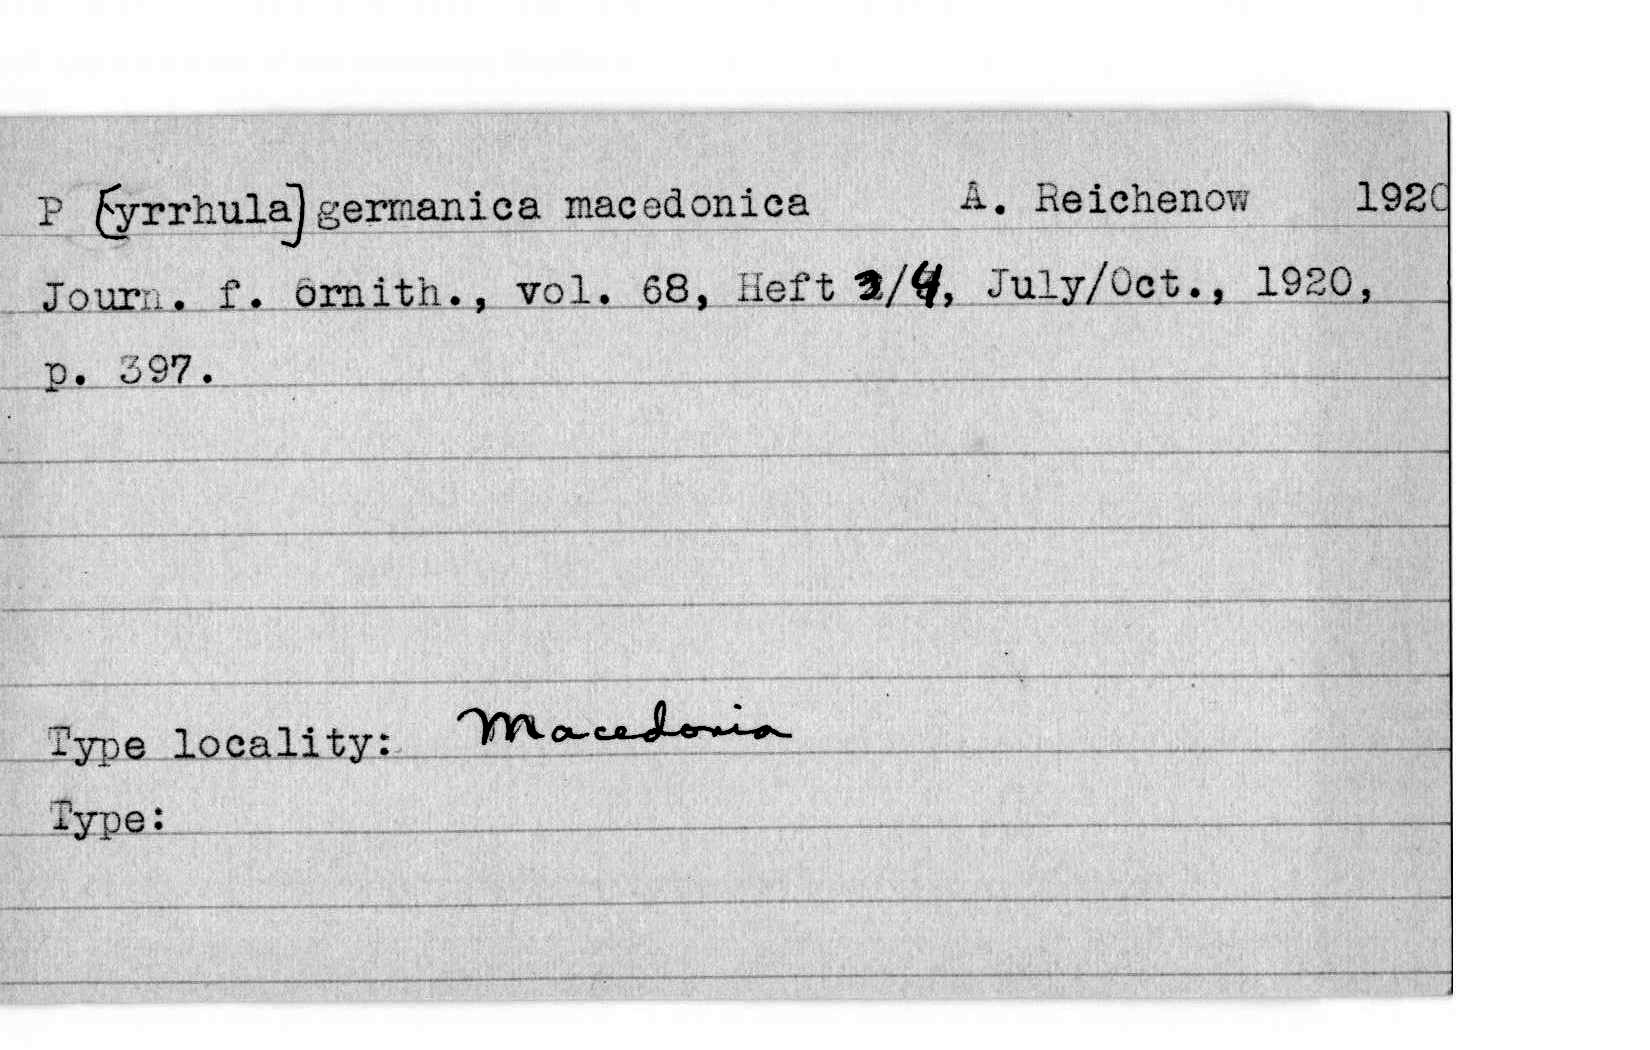 P [yrrhula] germanica macedonica A. Reichenow 1920
Journ. f. Ornith., vol. 68, Heft 3/4, July/Oct., 1920,
p. 397.
Type locality: Macedonia
Type: